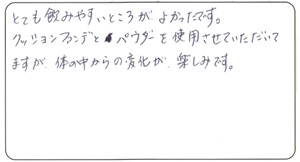 とても飲みやすいところがよかったです。
クッションファンデとパウダーを使用させていただいて
ますが、体の中からの変化が、楽しみです。